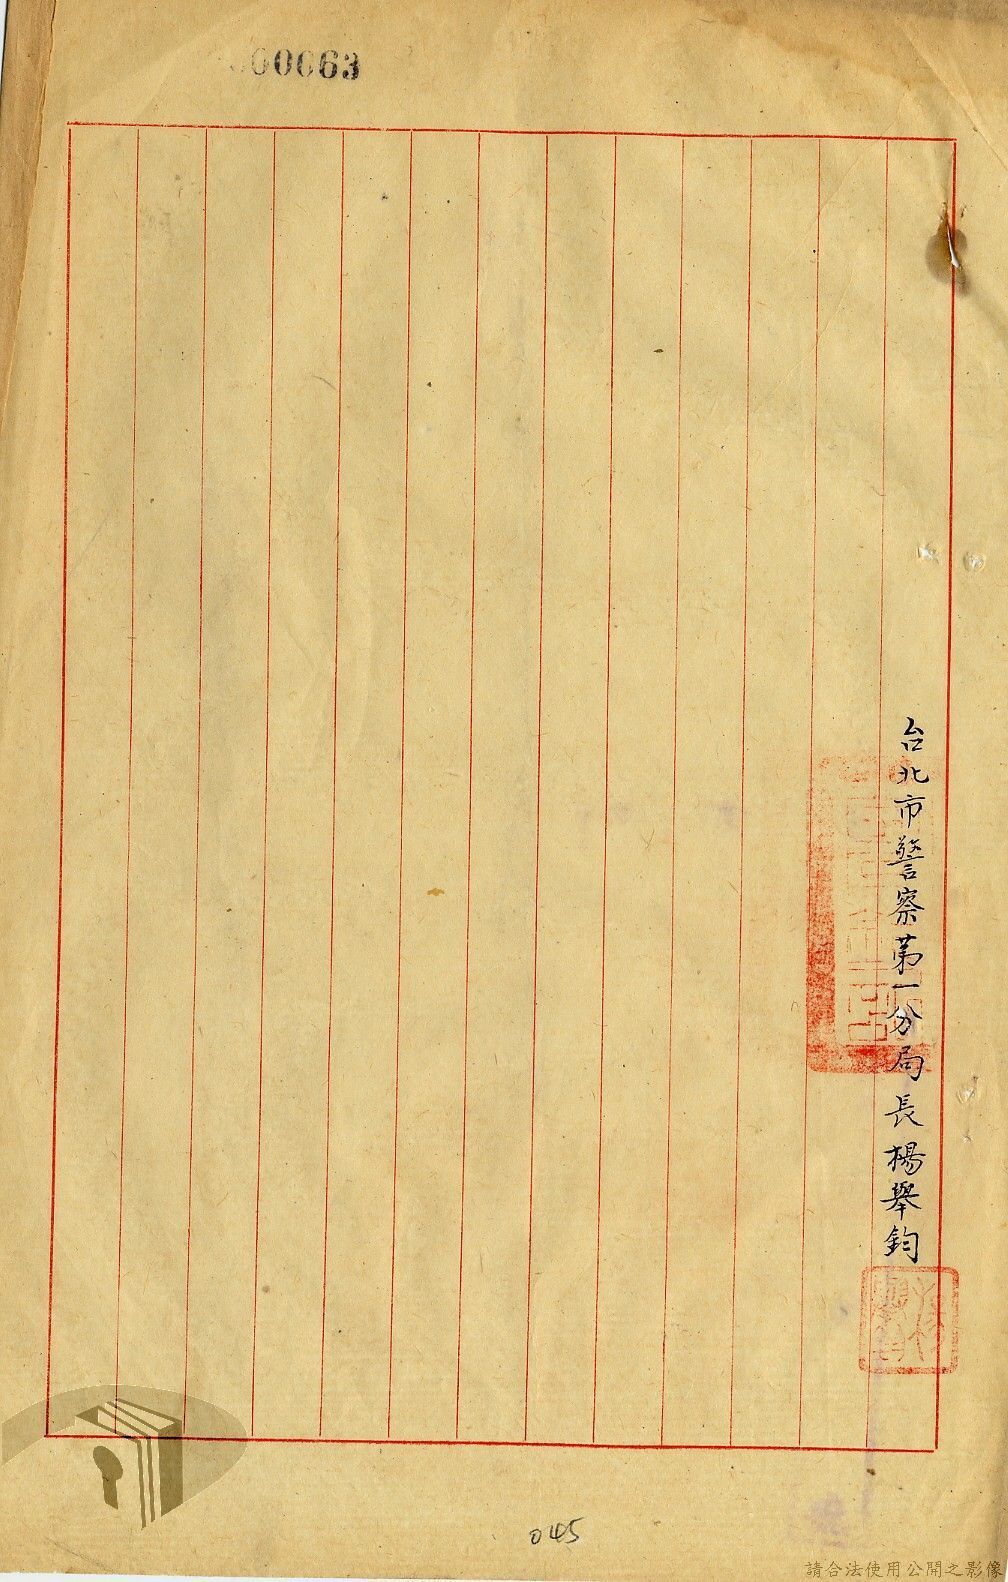 000063
台北市警察第一分局長楊舉鈞
045
請合法使用公開之影像